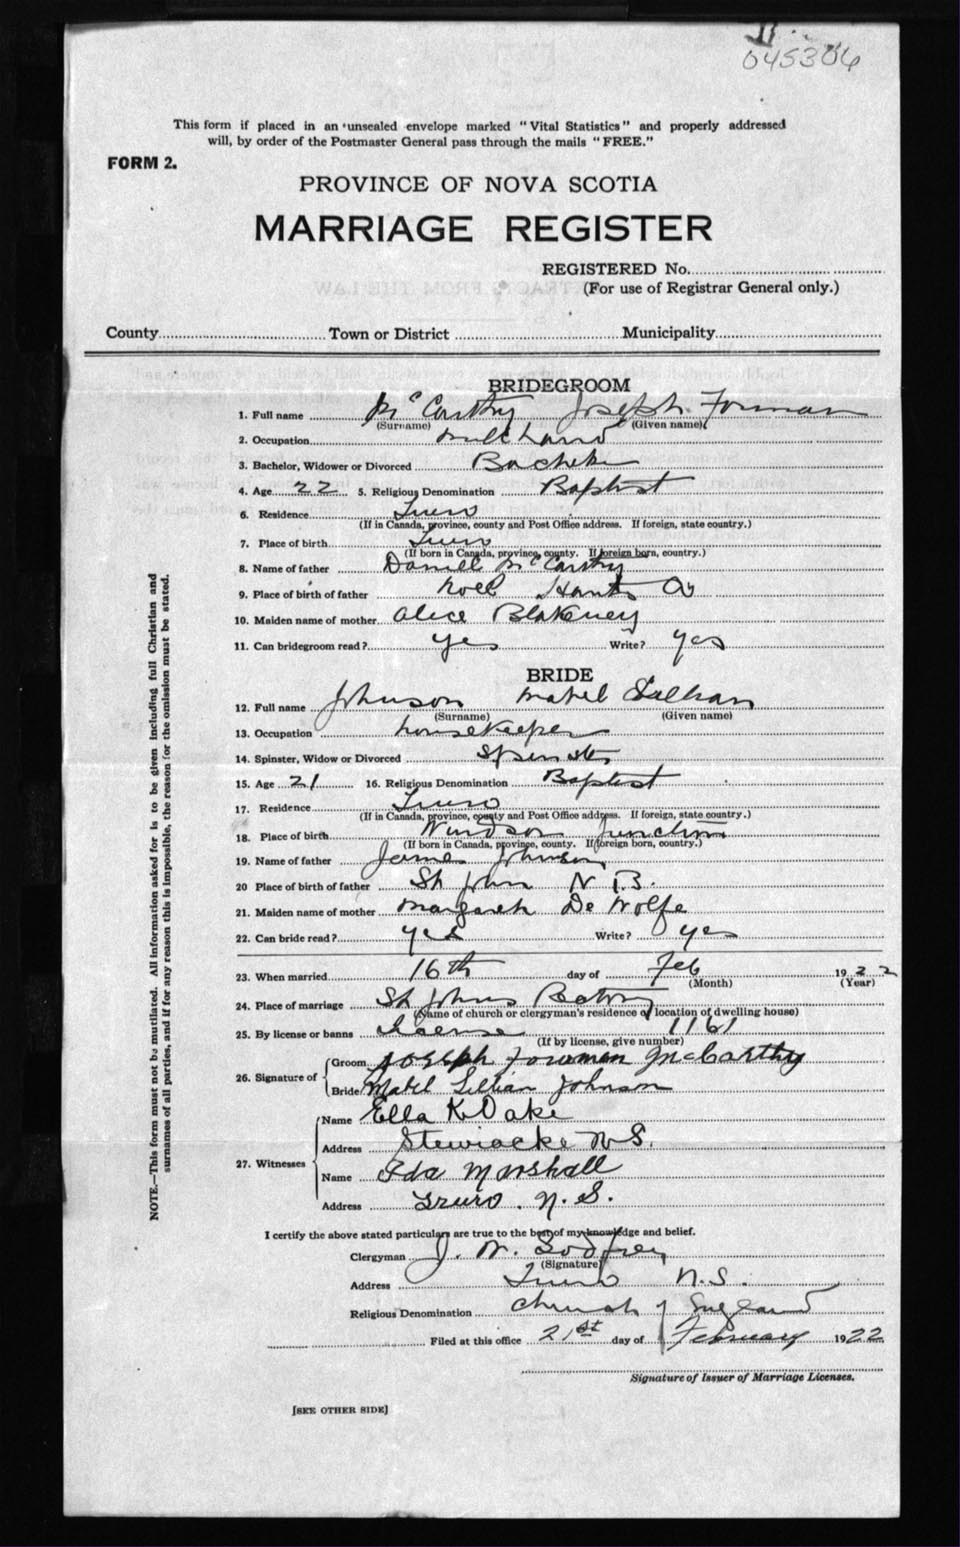 045306
This form if placed in an unsealed envelope marked "Vital Statistics" and properly addressed
will, by order of the Postmaster General pass through the mails "FREE."
FORM 2.
PROVINCE OF NOVA SCOTIA
MARRIAGE REGISTER
REGISTERED No.
(For use of Registrar General only.)
County Town or District Municipality
BRIDEGROOM
1. Full name McCarthy Joseph Forman
(Surname) (Given name)
2. Occupation
3. Bachelor, Widower or Divorced Bachelor
4. Age 22 5. Religious Denomination Baptist
6. Residence Truro
(If in Canada, province, county and Post Office address. If foreign, state country.)
7. Place of birth Truro
(If born in Canada, province, county. If foreign born, country.)
8. Name of father Daniel McCarthy
9. Place of birth of father Noel Hants Co
10. Maiden name of mother Alice Blakeney
11. Can bridegroom read? yes Write? yes
BRIDE
12. Full name Johnson Mabel Lillian
(Surname) (Given name)
13. Occupation housekeeper
14. Spinster, Widow or Divorced Spinster
15. Age 21 16. Religious Denomination Baptist
17. Residence Truro
(If in Canada, province, county and Post Office address. If foreign, state country.)
18. Place of birth Windsor Junction
(If born in Canada, province, county. If foreign born, country.)
19. Name of father James Johnson
20 Place of birth of father St John N B.
21. Maiden name of mother Margaret De Wolfe
22. Can bride read? yes Write? yes
23. When married 16th day of Feb 1922
(Month) (Year)
24. Place of marriage St Johns Rectory
(Name of church or clergyman's residence of location of dwelling house)
25. By license or banns License 1161
(If by license, give number)
26. Signature of Groom Joseph Forman McCarthy
Bride Mabel Lillian Johnson
27. Witnesses
Name Ella K Dake
Address Stewiacke N S.
Name Ida Marshall
Address Truro. N. S.
I certify the above stated particulars are true to the best of my knowledge and belief.
Clergyman J. W. Godfrey
(Signature)
Address Truro N.S.
Religious Denomination Church of England
Filed at this office 21st day of February 1922
Signature of Issuer of Marriage Licenses.
[SEE OTHER SIDE]
NOTE.—This form must not be mutilated. All information asked for is to be given including full Christian and
surnames of all parties, and if for any reason this is impossible, the reason for the omission must be stated.